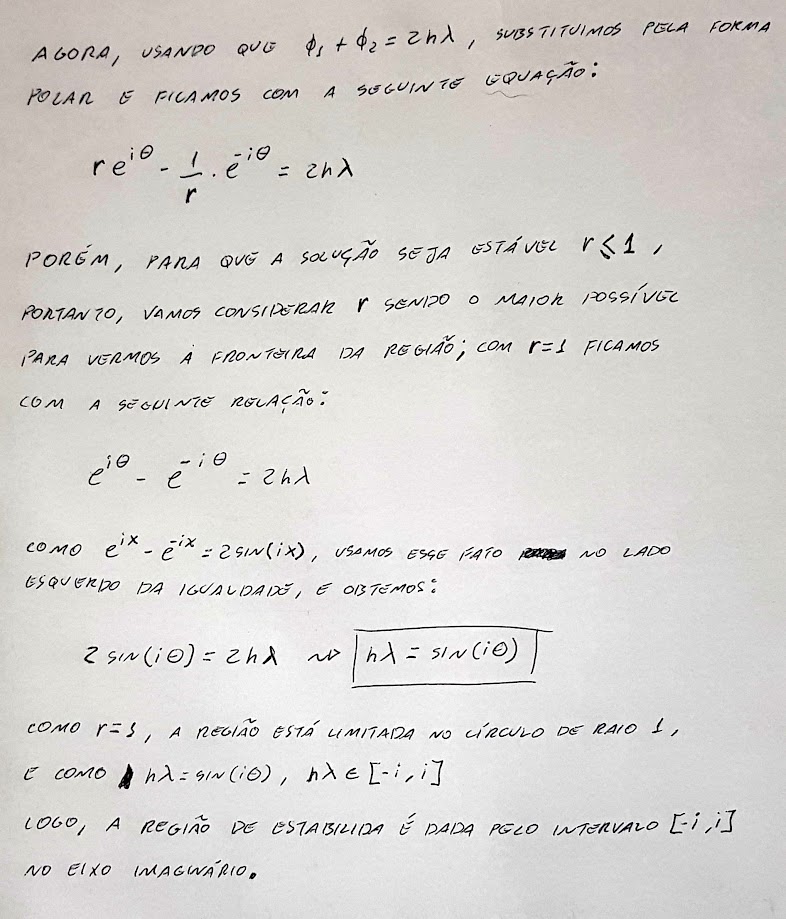 AGORA, USANDO QUE ϕ₁ + ϕ₂ = 2hλ, SUBSTITUIMOS PELA FORMA
POLAR E FICAMOS COM A SEGUINTE EQUAÇÃO:
re^{iθ} - 1/r · e^{-iθ} = 2hλ
PORÉM, PARA QUE A SOLUÇÃO SEJA ESTÁVEL r ≤ 1,
PORTANTO, VAMOS CONSIDERAR r SENDO O MAIOR POSSÍVEL
PARA VERMOS A FRONTEIRA DA REGIÃO; COM r=1 FICAMOS
COM A SEGUINTE RELAÇÃO:
e^{iθ} - e^{-iθ} = 2hλ
COMO e^{ix} - e^{-ix} = 2SIN(ix), USAMOS ESSE FATO NO LADO
ESQUERDO DA IGUALDADE, E OBTEMOS:
2 SIN(iθ) = 2hλ ⇝ hλ = SIN(iθ)
COMO r=1, A REGIÃO ESTÁ LIMITADA NO CÍRCULO DE RAIO 1,
E COMO hλ = SIN(iθ), hλ ∈ [-i, i]
LOGO, A REGIÃO DE ESTABILIDA É DADA PELO INTERVALO [-i, i]
NO EIXO IMAGINÁRIO.